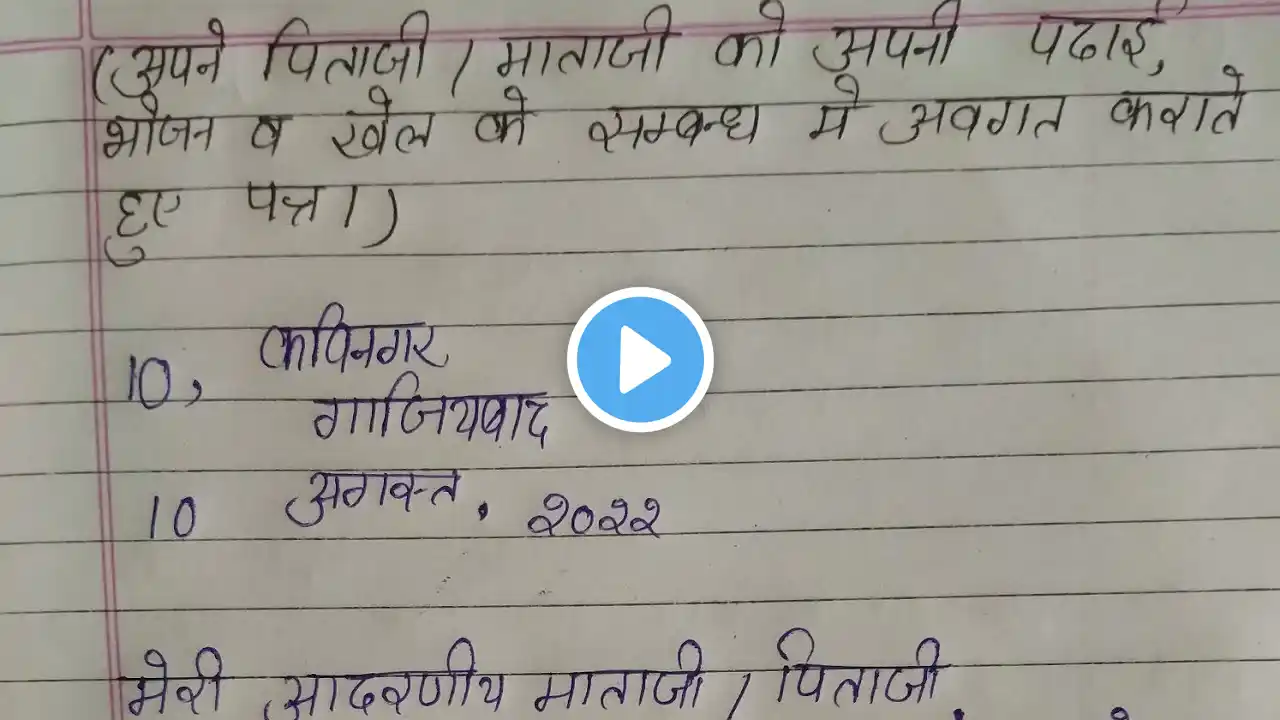 (अपने पिताजी / माताजी को अपनी पढाई,
भोजन व खेल के सम्बन्ध मे अवगत कराते
हुए पत्र।)
10, कविनगर
गाजियबाद
10 अगस्त, २०२२
मेरी आदरणीय माताजी / पिताजी